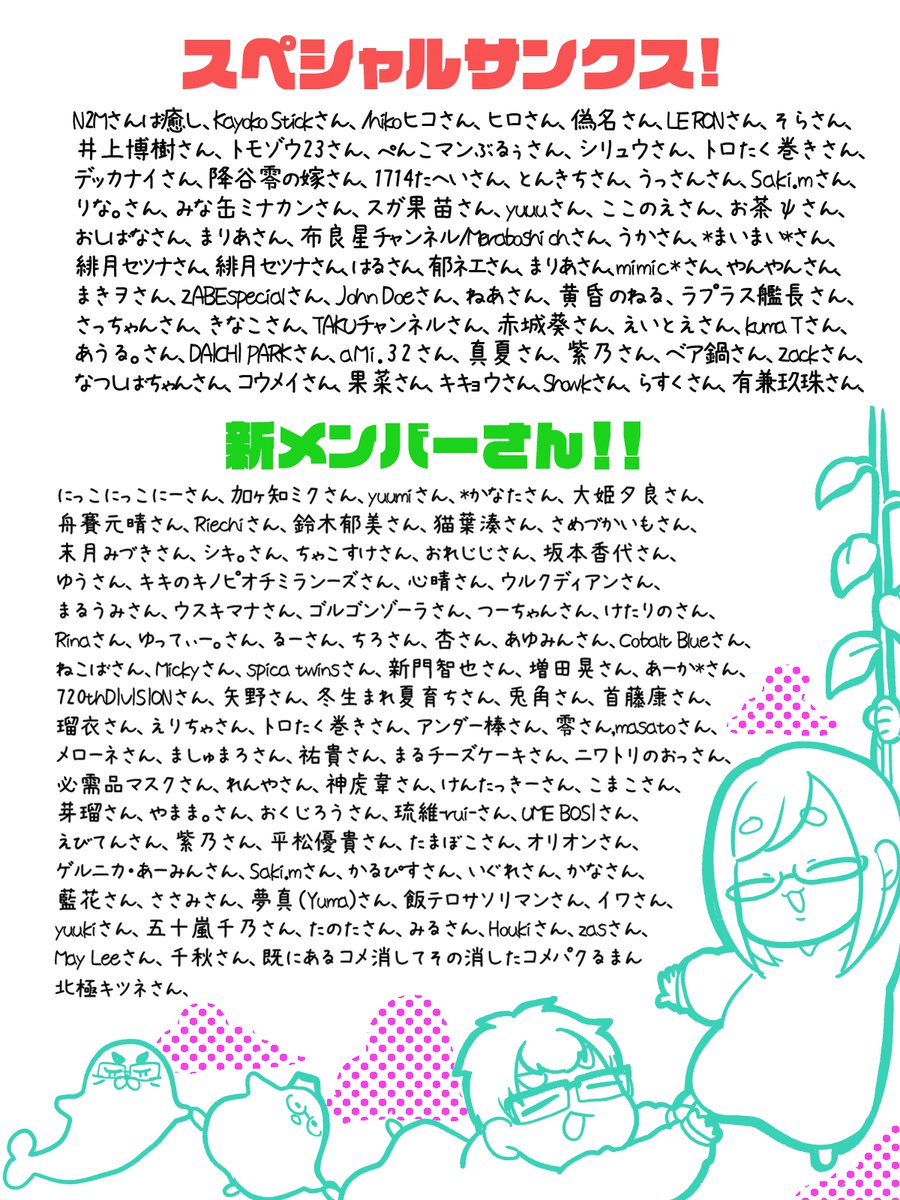 スペシャルサンクス!
N2Mさんは癒し、Kayoko Stickさん、/hikoヒコさん、ヒロさん、偽名さん、LE RONさん、そらさん、
井上博樹さん、トモゾウ23さん、ぺんこマンぶるぅさん、シリュウさん、トロたく巻きさん、
デッカナイさん、降谷零の嫁さん、1714たへいさん、とんきちさん、うっさんさん、Saki.mさん、
りな。さん、みな缶ミナカンさん、スガ果苗さん、yuuuさん、ここのえさん、お茶ψさん、
おしばなさん、まりあさん、布良星チャンネル/Meraboshi chさん、うかさん、*まいまい*さん、
緋月セツナさん、緋月セツナさん、はるさん、郁ネエさん、まりあさん、mimic*さん、やんやんさん、
まきヲさん、ZABEspecialさん、John Doeさん、ねあさん、黄昏のねる、ラプラス艦長さん、
さっちゃんさん、きなこさん、TAKUチャンネルさん、赤城葵さん、えいとえさん、kuma Tさん、
あうる。さん、DAICHI PARKさん、aMi.32さん、真夏さん、紫乃さん、ベア鍋さん、zackさん、
なつしはちゃんさん、コウメイさん、果菜さん、キキョウさん、Shawkさん、らすくさん、有兼玖珠さん、
新メンバーさん!!
にっこにっこにーさん、加ヶ知ミクさん、yuumiさん、*かなたさん、大姫夕良さん、
舟賽元晴さん、Riechiさん、鈴木郁美さん、猫葉湊さん、さめづかいもさん、
末月みづきさん、シキ。さん、ちゃこすけさん、おれじじさん、坂本香代さん、
ゆうさん、キキのキノピオチミランーズさん、心晴さん、ウルクディアンさん、
まるうみさん、ウスキマナさん、ゴルゴンゾーラさん、つーちゃんさん、けたりのさん、
Rinaさん、ゆってぃー。さん、るーさん、ちろさん、杏さん、あゆみんさん、Cobalt Blueさん、
ねこばさん、Mickyさん、spica twinsさん、新門智也さん、増田晃さん、あーか*さん、
720thDIVISIONさん、矢野さん、冬生まれ夏育ちさん、兎角さん、首藤康さん、
瑠衣さん、えりちゃさん、トロたく巻きさん、アンダー棒さん、零さん,masatoさん、
メローネさん、ましゅまろさん、祐貴さん、まるチーズケーキさん、ニワトリのおっさん、
必需品マスクさん、れんやさん、神虎韋さん、けんたっきーさん、こまこさん、
芽瑠さん、やまま。さん、おくじろうさん、琉維-rui-さん、UME BOSIさん、
えびてんさん、紫乃さん、平松優貴さん、たまぼこさん、オリオンさん、
ゲルニカ・あーみんさん、Saki.mさん、かるぴすさん、いぐれさん、かなさん、
藍花さん、ささみさん、夢真(Yuma)さん、飯テロサソリマンさん、イワさん、
yuukiさん、五十嵐千乃さん、たのたさん、みるさん、Houkiさん、zasさん、
May Leeさん、千秋さん、既にあるコメ消してその消したコメパクるまん
北極キツネさん、